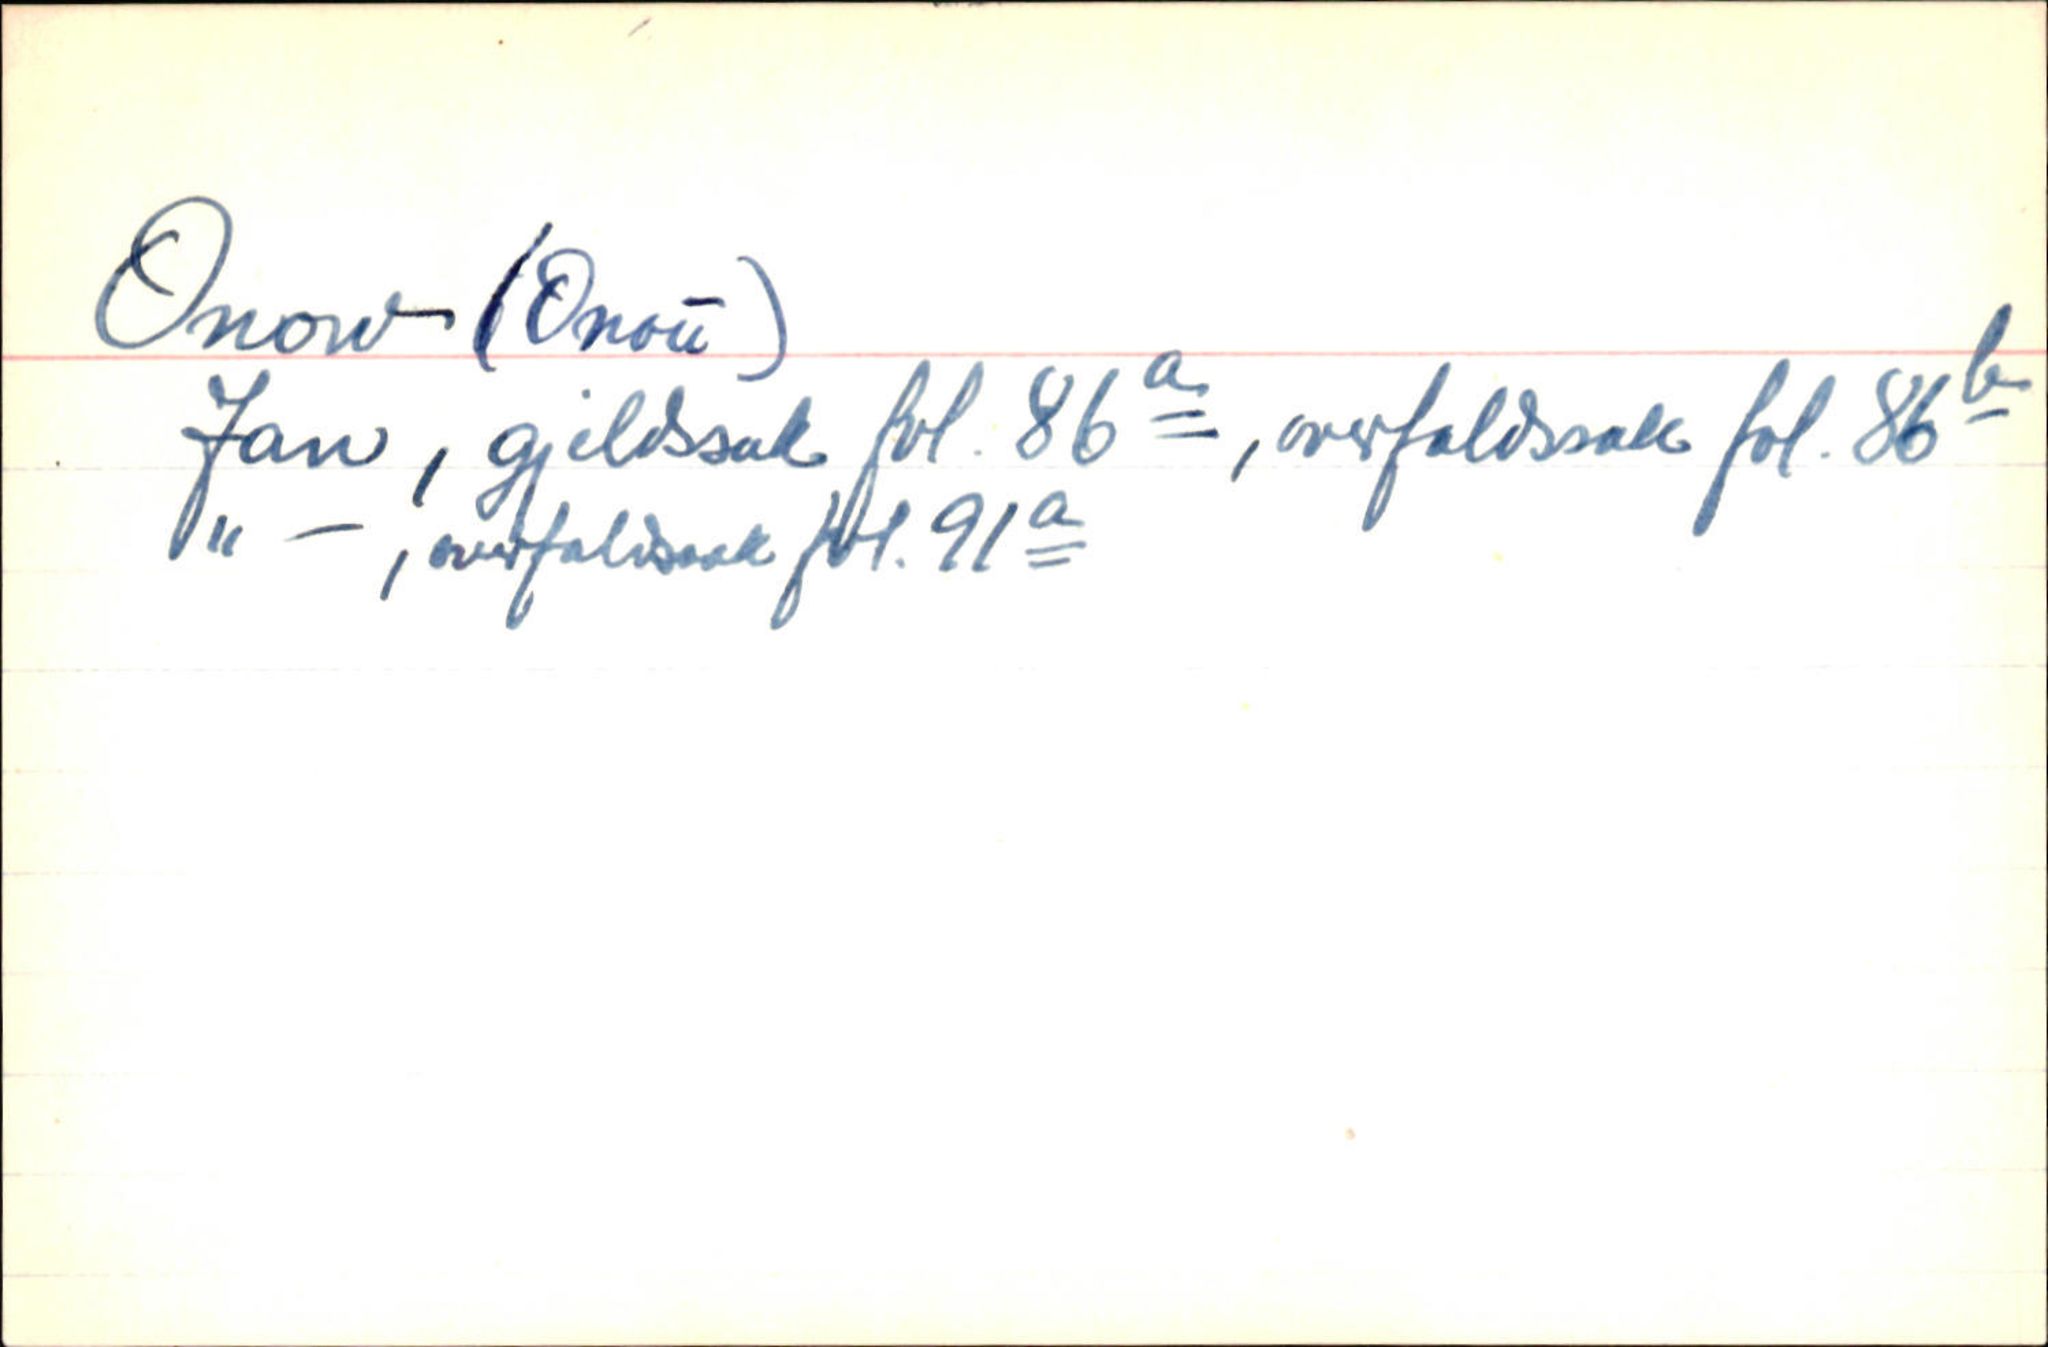 Onow (Onoū)
Jan, gjeldssak fol. 86a, overfaldssak fol. 86b
" – , overfaldssak fol. 91a